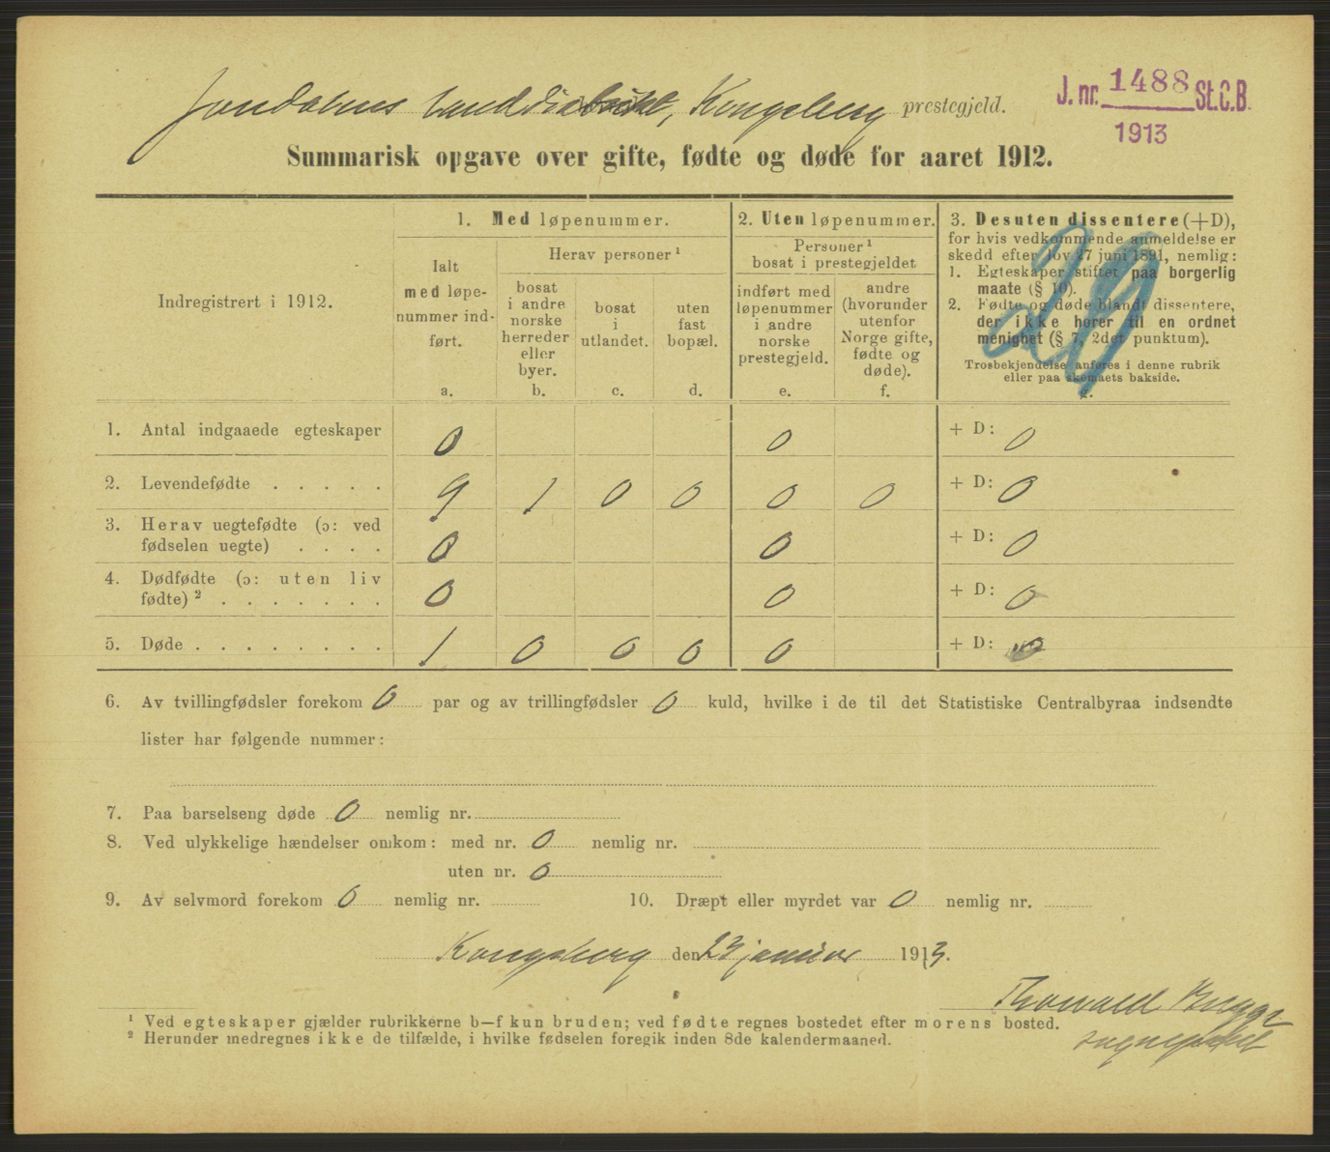 Jondalens landdistrikt, Kongsberg prestegjeld.
J. nr. 1488 St.C.B.
1913
Summarisk opgave over gifte, fødte og døde for aaret 1912.
Indregistrert i 1912.
1. Med løpenummer.
Ialt
med løpe-
nummer ind-
ført.
a.
Herav personer ¹
bosat
i andre
norske
herreder
eller
byer.
b.
bosat
i
utlandet.
c.
uten
fast
bopæl.
d.
2. Uten løpenummer.
Personer ¹
bosat i prestegjeldet
indført med
løpenummer
i andre
norske
prestegjeld.
e.
andre
(hvorunder
utenfor
Norge gifte,
fødte og
døde).
f.
3. Desuten dissentere (+D),
for hvis vedkommende anmeldelse er
skedd efter lov 27 juni 1891, nemlig:
1. Egteskaper stiftet paa borgerlig
maate (§ 10).
2. Fødte og døde blandt dissentere,
der ikke hører til en ordnet
menighet (§ 7, 2det punktum).
Trosbekjendelse anføres i denne rubrik
eller paa skemaets bakside.
g.
29
1. Antal indgaaede egteskaper 0 0 + D: 0
2. Levendefødte . . . . . 9 1 0 0 0 0 + D: 0
3. Herav uegtefødte (ɔ: ved
fødselen uegte) . . . . 0 0 + D: 0
4. Dødfødte (ɔ: uten liv
fødte) ² . . . . . . . 0 0 + D: 0
5. Døde . . . . . . . . 1 0 0 0 0 + D: 0
6. Av tvillingfødsler forekom 0 par og av trillingfødsler 0 kuld, hvilke i de til det Statistiske Centralbyraa indsendte
lister har følgende nummer:
7. Paa barselseng døde 0 nemlig nr.
8. Ved ulykkelige hændelser omkom: med nr. 0 nemlig nr.
uten nr. 0
9. Av selvmord forekom 0 nemlig nr. 10. Dræpt eller myrdet var 0 nemlig nr.
Kongsberg den 23 januar 1913.
Thorvald
sogneprest
¹ Ved egteskaper gjælder rubrikkerne b—f kun bruden; ved fødte regnes bostedet efter morens bosted.
² Herunder medregnes ikke de tilfælde, i hvilke fødselen foregik inden 8de kalendermaaned.